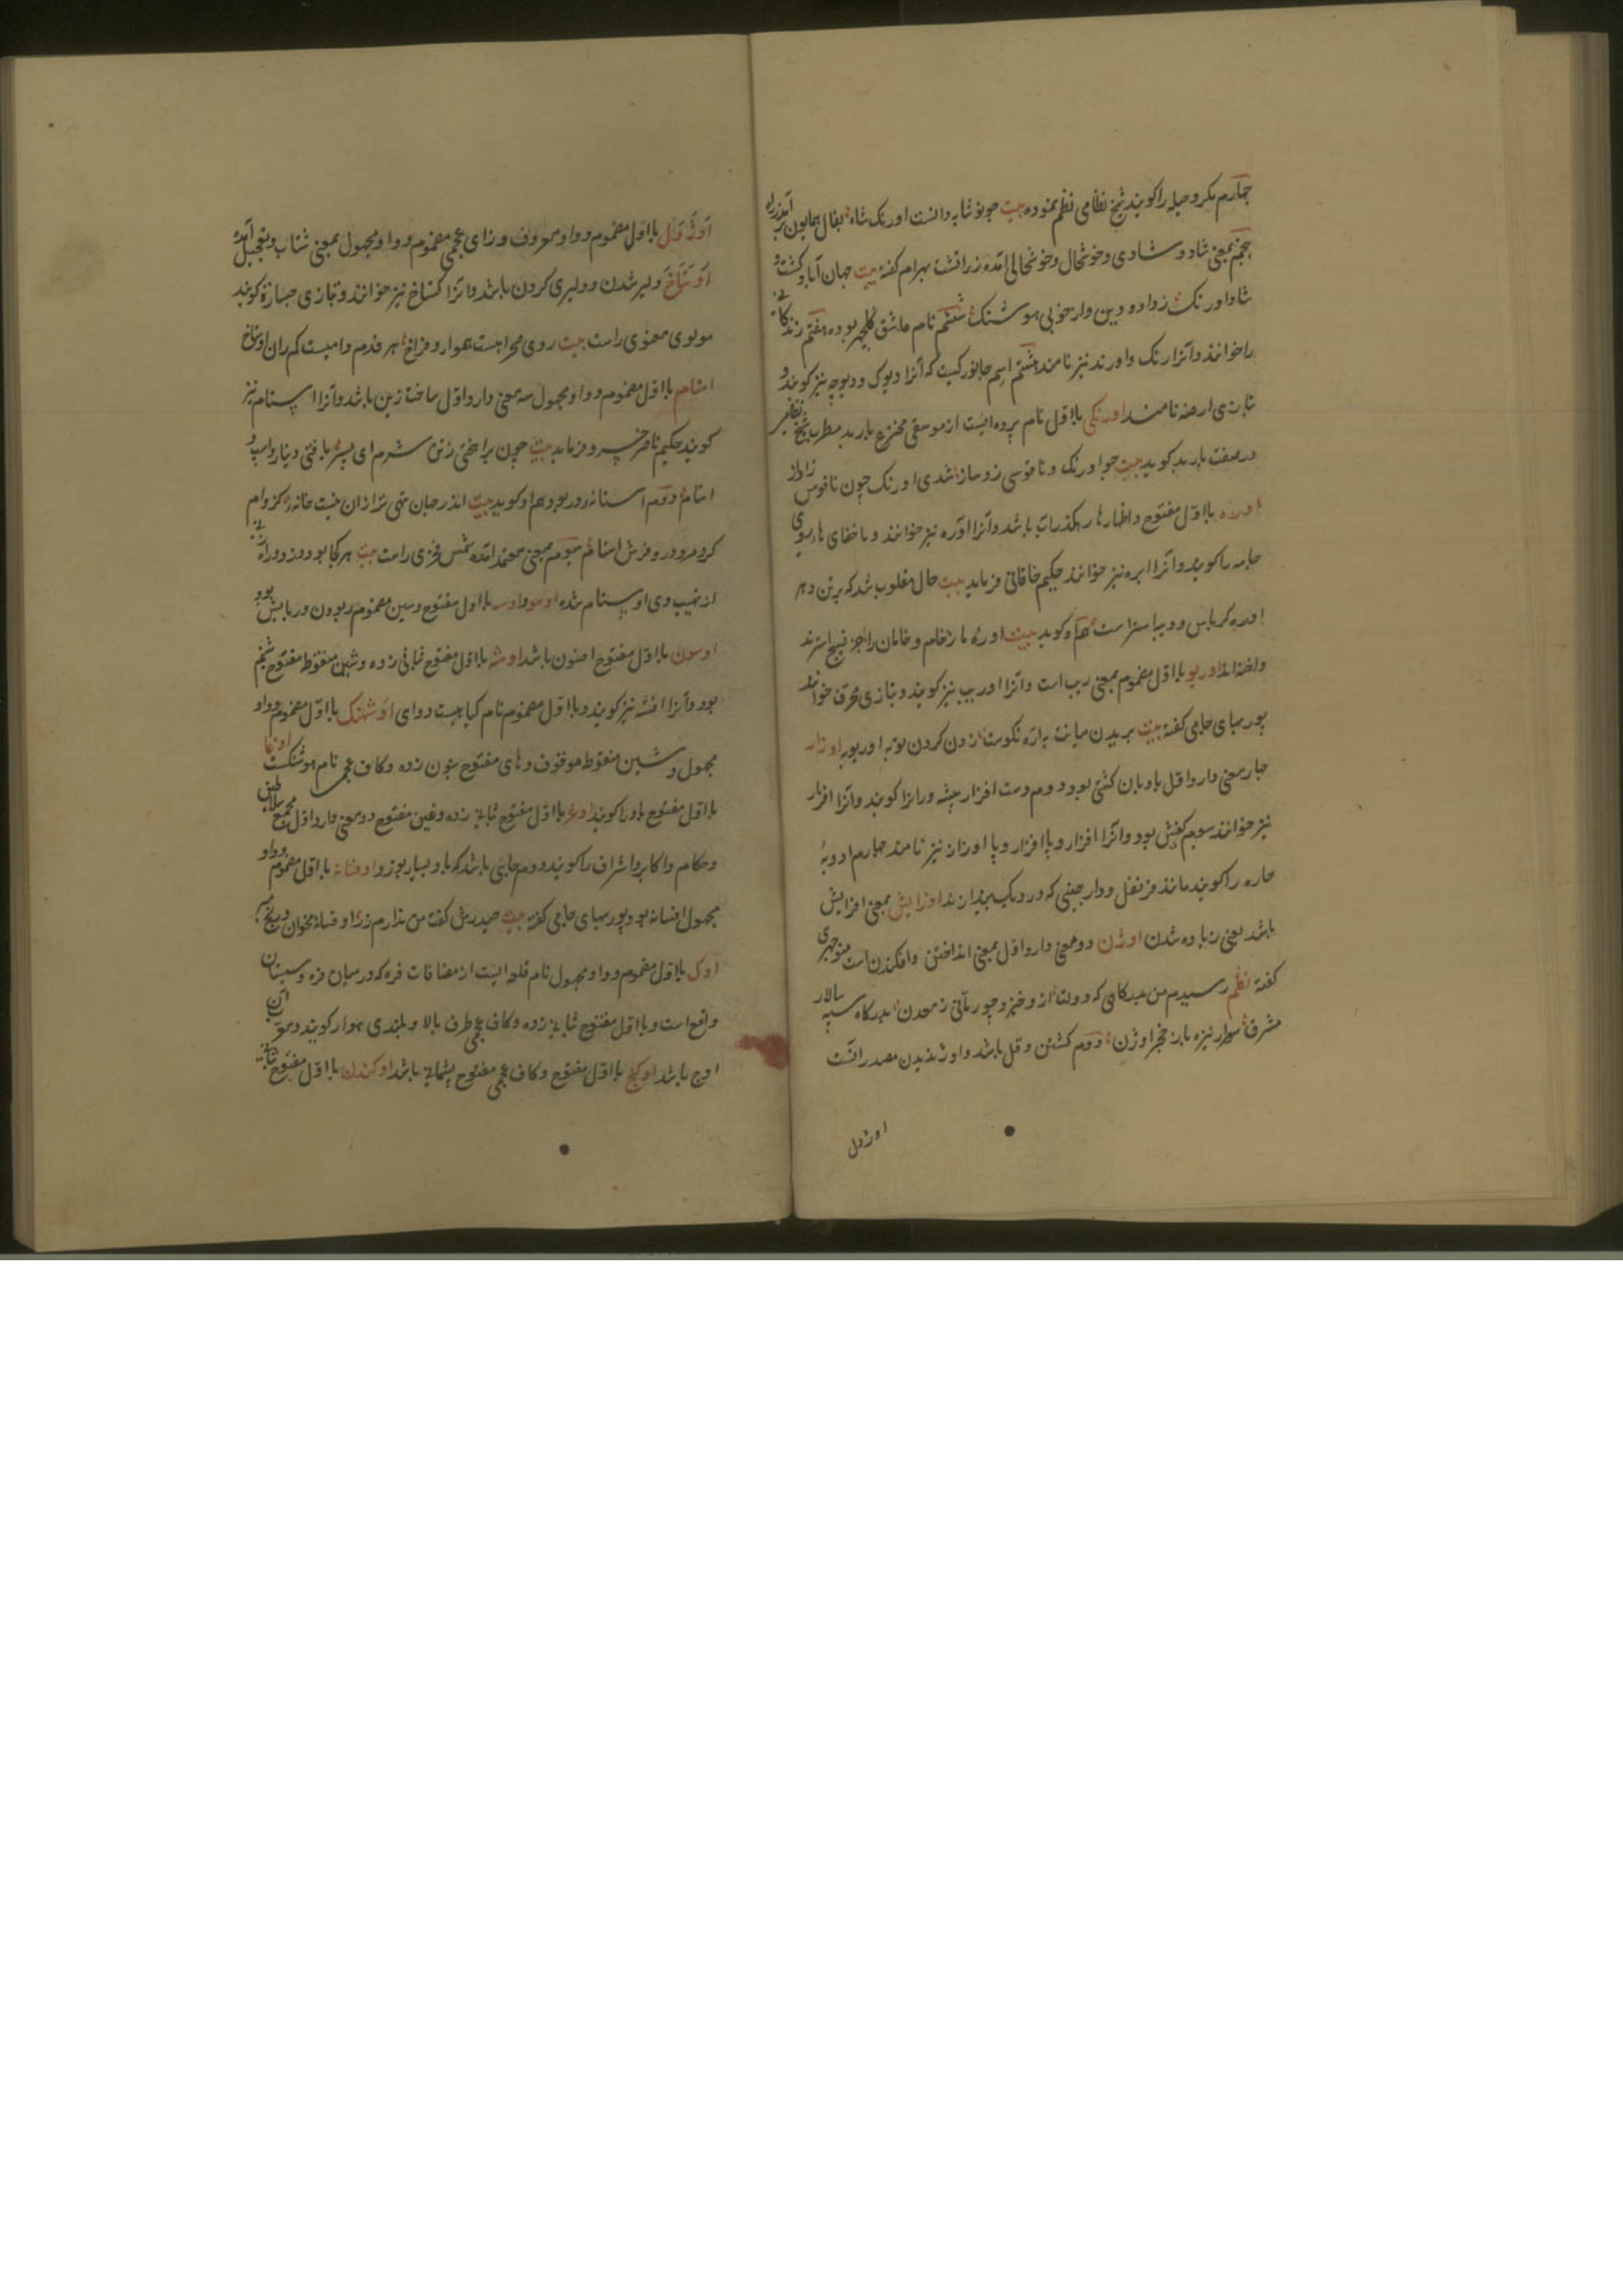 چهارم مکر و حیله را کویند شیخ نظامی نظم نموده بیت چو نوشابه دانست اورنک شاه بفال همایون
پنجم بمعنی شاد و شادی و خوشحال و خوشحالی آمده زراتشت بهرام کفته بیت جهان آباد کشت و
شاد اورنک زداد و دین و از خوبی هوشنک ششم نام عاشق کلچهر بوده هفتم
را خوانند و آنرا رنک و اورند نیز نامند هشتم اسم جانورکیست که آنرا دیوک و دیوچه نیز کویند و
بتازی ارضه نامند اورنکی با اول نام پرده ایست از موسقی مخترع باربد مطرب شیخ نظامی
در صفت باربد کوید بیت چو اورنک و ناقوسی زد و ساز شدی اورنک چون ناقوس
اوره با اول مفتوح و اظهار ها رهکذر آب باشد و آنرا آوره نیز خوانند و با خفای ها روی
جامه را کویند و آنرا ابره نیز خوانند حکیم خاقانی فرماید بیت حال مقلوب شد که بر تن دهر
اوره کرباس و دیبا ستر است هم او کوید بیت اوره ما ز خام و خامان را جز نسیج
واخته اند اوریو با اول مضموم بمعنی ریب است و آنرا اوریب نیز کویند و بتازی محرف خوانند
پور بهای جامی کفته بیت بریدن میانت به اره نکوست زدن کردن تو به اوریو به اوزار
چهار معنی دارد اول بادبان کشتی بود دوم دست افزار پیشه وران را کویند و آنرا افزار
نیز خوانند سوم کفش بود و آنرا افزار و پا افزار و پا اوزار نیز نامند چهارم ادویه
حاره را کویند مانند قرنفل و دارچینی که در دیک بیندازند اوزایش بمعنی افزایش
باشد یعنی زیاده شدن اوژن دو معنی دارد اول بمعنی انداختن و افکندن است منوچهری
کفته نظم رسیدم من بدرکاهی که دولت از و خیزد چو رمانی ز معدن بدرکاه سپه سالار
مشرق سوار نیزه باز خنجر اوژن دوم کشتن و قتل باشد و اوژندیدن مصدر آنست
اوژول
اوژول با اول مضموم و واو معروف و زای عجمی مضموم و واو مجهول بمعنی شتاب و تعجیل آمده
اوستاخ دلیر شدن و دلیری کردن باشد و آنرا کستاخ نیز خوانند و بتازی جسارة کویند
مولوی معنوی راست بیت روی صحرا هست هموار و فراخ هر قدم دامیست کم ران اوستاخ
استام با اول مضموم و واو مجهول سه معنی دارد اول ساخت زین باشد و آنرا استام نیز
کویند حکیم ناصر خسرو فرماید بیت چون براختی ز تن شرم ای پسر یافتی دینار و اسپ و
استام دوم استانه در بود هم او کوید بیت اندر جهان تهی تر ازان نیست خانه کز وام
کرد مرد در و فرش استام سوم بمعنی معتمد آمده شمس فخری راست بیت هر کجا بود دزد و
از نهیب وی اوستام شده اوسو و اوس با اول مفتوح و سین مضموم ربودن و ربایش بود
اوسون با اول مفتوح افسون باشد اوشه با اول مفتوح بثانی زده و شین منقوط مفتوح شبنم
بود و آنرا افشه نیز کویند و با اول مضموم نام کیاهیست دوای اوشهنک با اول مضموم و واو
مجهول و شین منقوط موقوف و های مفتوح بنون زده و کاف عجمی نام هوشنکست اوغا
با اول مفتوح باد را کویند اوغر با اول مفتوح بثانی زده و غین مفتوح دو معنی دارد اول مجمع سلاطین
و حکام و اکابر و اشراف را کویند دوم جایی باشد که باد بسیار بوزد اوفسانه با اول مضموم و واو
مجهول افسانه بود پور بهای جامی کفته بیت حیدرش کفت من ندارم زر اوفسانه مخوان
اوک با اول مضموم و واو مجهول نام قلعه ایست از مضافات فره که در میان فره و سیستان
واقع است و با اول مفتوح بثانی زده و کاف عجمی طرف بالا و بلندی هوا را کویند و معرب آن
اوج باشد اوکج با اول مفتوح و کاف عجمی مفتوح پشیمانی باشد اوکندن با اول مفتوح بثانی